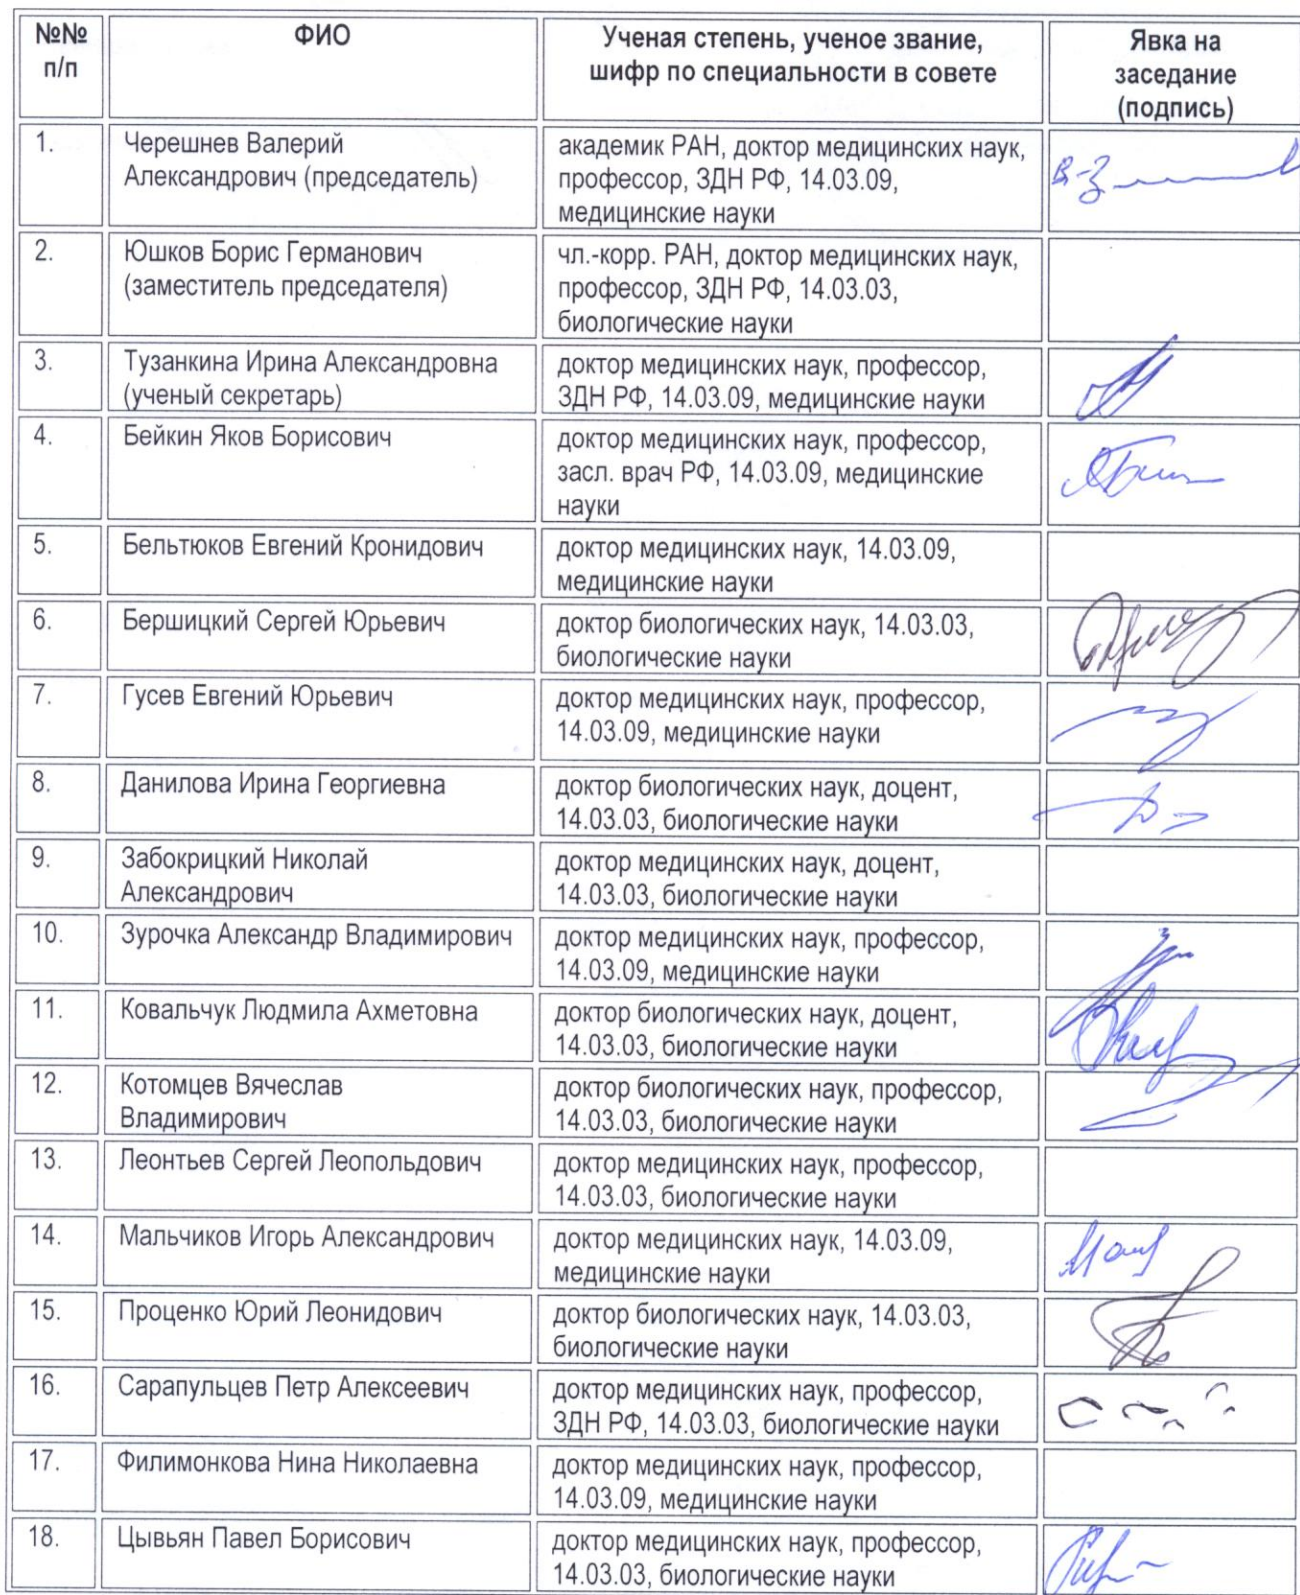 №№ п/п
ФИО
Ученая степень, ученое звание,
шифр по специальности в совете
Явка на
заседание
(подпись)
1.
Черешнев Валерий
Александрович (председатель)
академик РАН, доктор медицинских наук,
профессор, ЗДН РФ, 14.03.09,
медицинские науки
2.
Юшков Борис Германович
(заместитель председателя)
чл.-корр. РАН, доктор медицинских наук,
профессор, ЗДН РФ, 14.03.03,
биологические науки
3.
Тузанкина Ирина Александровна
(ученый секретарь)
доктор медицинских наук, профессор,
ЗДН РФ, 14.03.09, медицинские науки
4.
Бейкин Яков Борисович
доктор медицинских наук, профессор,
засл. врач РФ, 14.03.09, медицинские
науки
5.
Бельтюков Евгений Кронидович
доктор медицинских наук, 14.03.09,
медицинские науки
6.
Бершицкий Сергей Юрьевич
доктор биологических наук, 14.03.03,
биологические науки
7.
Гусев Евгений Юрьевич
доктор медицинских наук, профессор,
14.03.09, медицинские науки
8.
Данилова Ирина Георгиевна
доктор биологических наук, доцент,
14.03.03, биологические науки
9.
Забокрицкий Николай
Александрович
доктор медицинских наук, доцент,
14.03.03, биологические науки
10.
Зурочка Александр Владимирович
доктор медицинских наук, профессор,
14.03.09, медицинские науки
11.
Ковальчук Людмила Ахметовна
доктор биологических наук, доцент,
14.03.03, биологические науки
12.
Котомцев Вячеслав
Владимирович
доктор биологических наук, профессор,
14.03.03, биологические науки
13.
Леонтьев Сергей Леопольдович
доктор медицинских наук, профессор,
14.03.03, биологические науки
14.
Мальчиков Игорь Александрович
доктор медицинских наук, 14.03.09,
медицинские науки
15.
Проценко Юрий Леонидович
доктор биологических наук, 14.03.03,
биологические науки
16.
Сарапульцев Петр Алексеевич
доктор медицинских наук, профессор,
ЗДН РФ, 14.03.03, биологические науки
17.
Филимонкова Нина Николаевна
доктор медицинских наук, профессор,
14.03.09, медицинские науки
18.
Цывьян Павел Борисович
доктор медицинских наук, профессор,
14.03.03, биологические науки